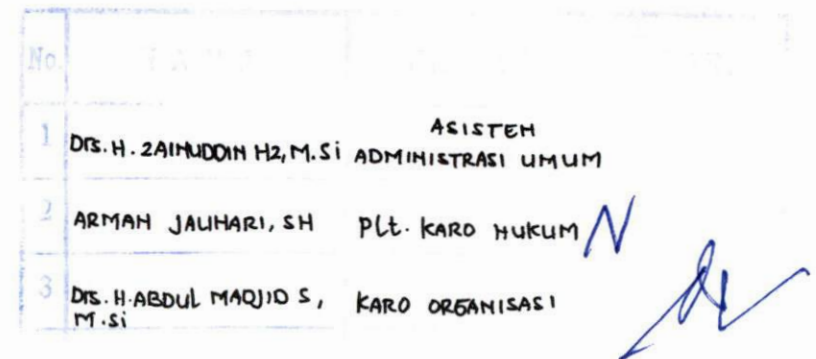 No.
1 Drs. H. ZAINUDDIN HZ, M.Si ASISTEN ADMINISTRASI UMUM
2 ARMAN JAUHARI, SH Plt. KARO HUKUM
3 Drs. H. ABDUL MADJID S, M.Si KARO ORGANISASI